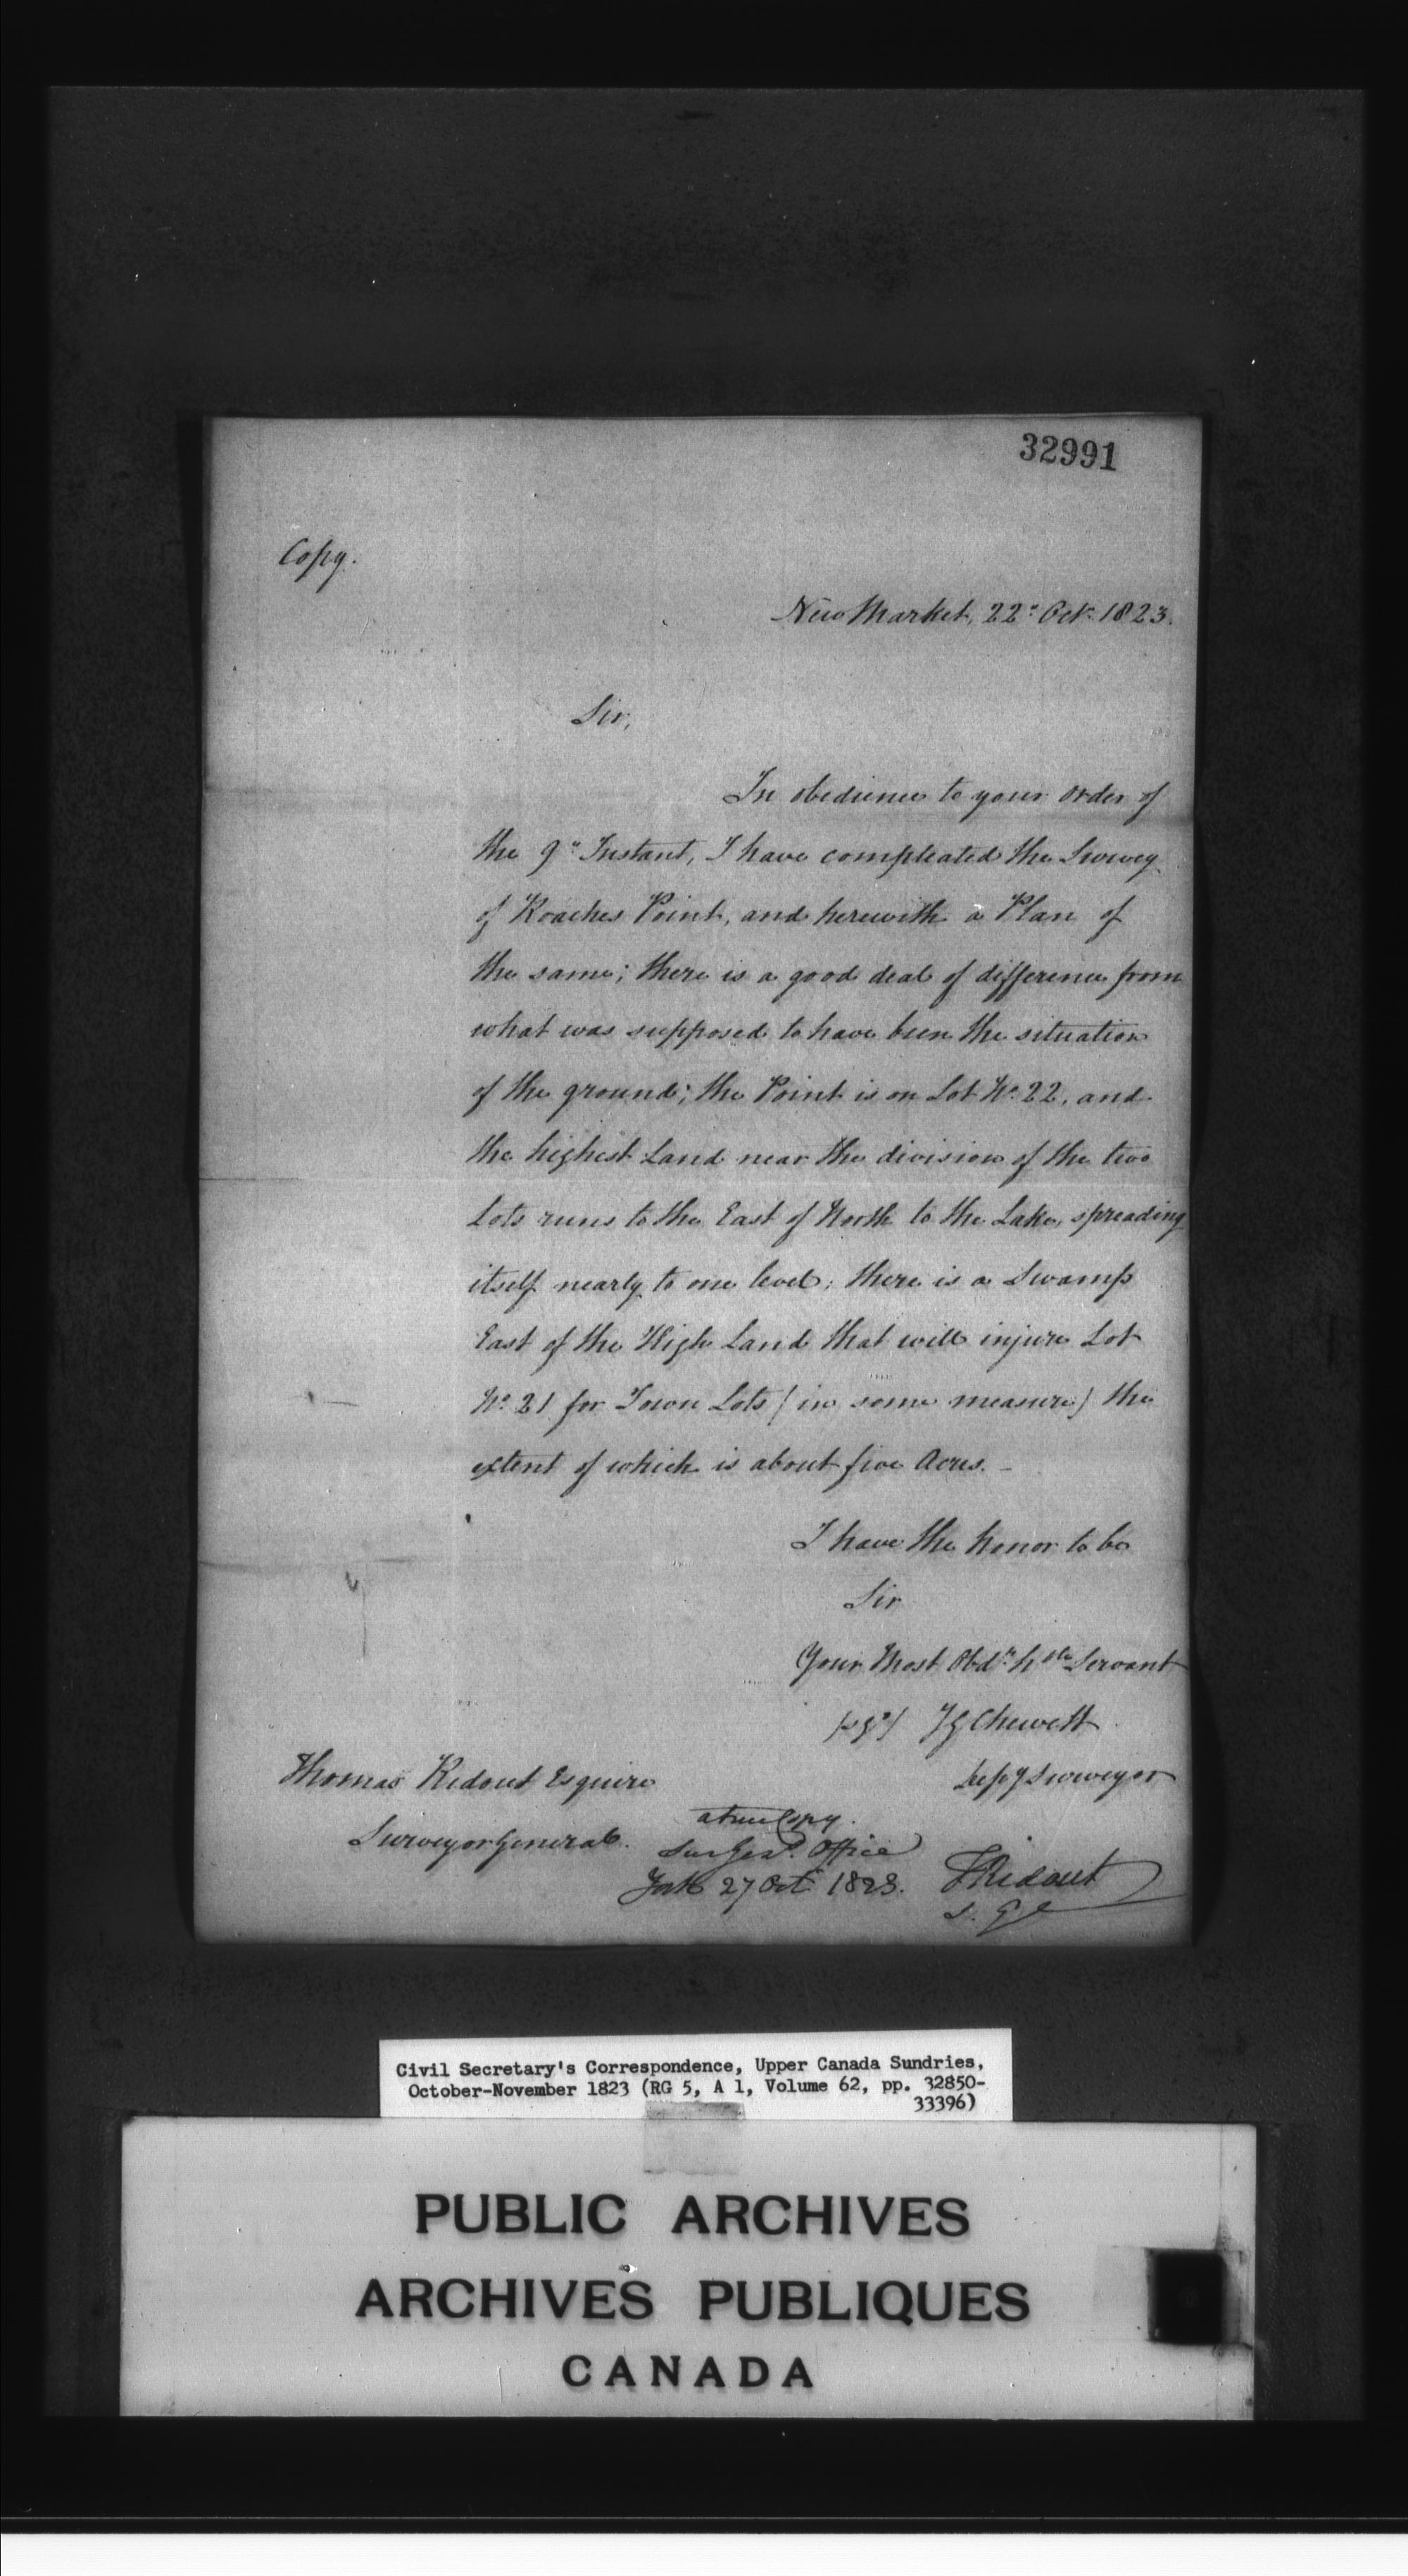 32991
Copy.
New Market, 22d Octr 1823.
Sir,
In obedience to your order of
the 9th Instant, I have compleated the Survey
of Roaches Point, and herewith a Plan of
the same; there is a good deal of difference from
what was supposed to have been the situation
of the ground; the Point is on Lot No. 22, and
the highest Land near the division of the two
Lots runs to the East of North to the Lake, spreading
itself nearly to one level; there is a Swamp
East of the High Land that will injure Lot
No. 21 for Town Lots (in some measure) the
extent of which is about five Acres. –
I have the honor to be
Sir
Your Most Obdt hble Servant
(sgd) JG Chewett
Depy Surveyor
Thomas Ridout Esquire
Surveyor General.
a true Copy.
Sur Genl. Office
York 27 Octr 1823.
T Ridout
S. G
Civil Secretary's Correspondence, Upper Canada Sundries,
October-November 1823 (RG 5, A 1, Volume 62, pp. 32850-
33396)
PUBLIC ARCHIVES
ARCHIVES PUBLIQUES
CANADA